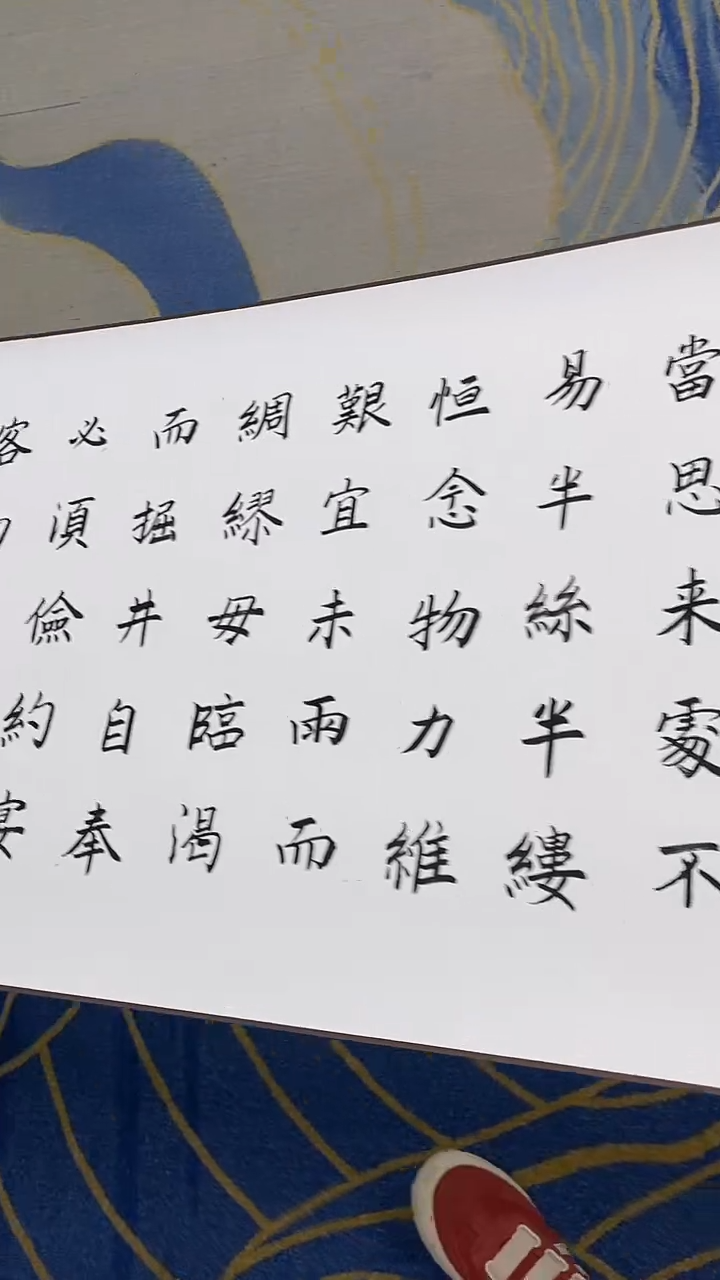 當思来處不
易半絲半縷
恒念物力維
艱宜未雨而
綢繆毋臨渴
而掘井自奉
必湏儉約宴
客